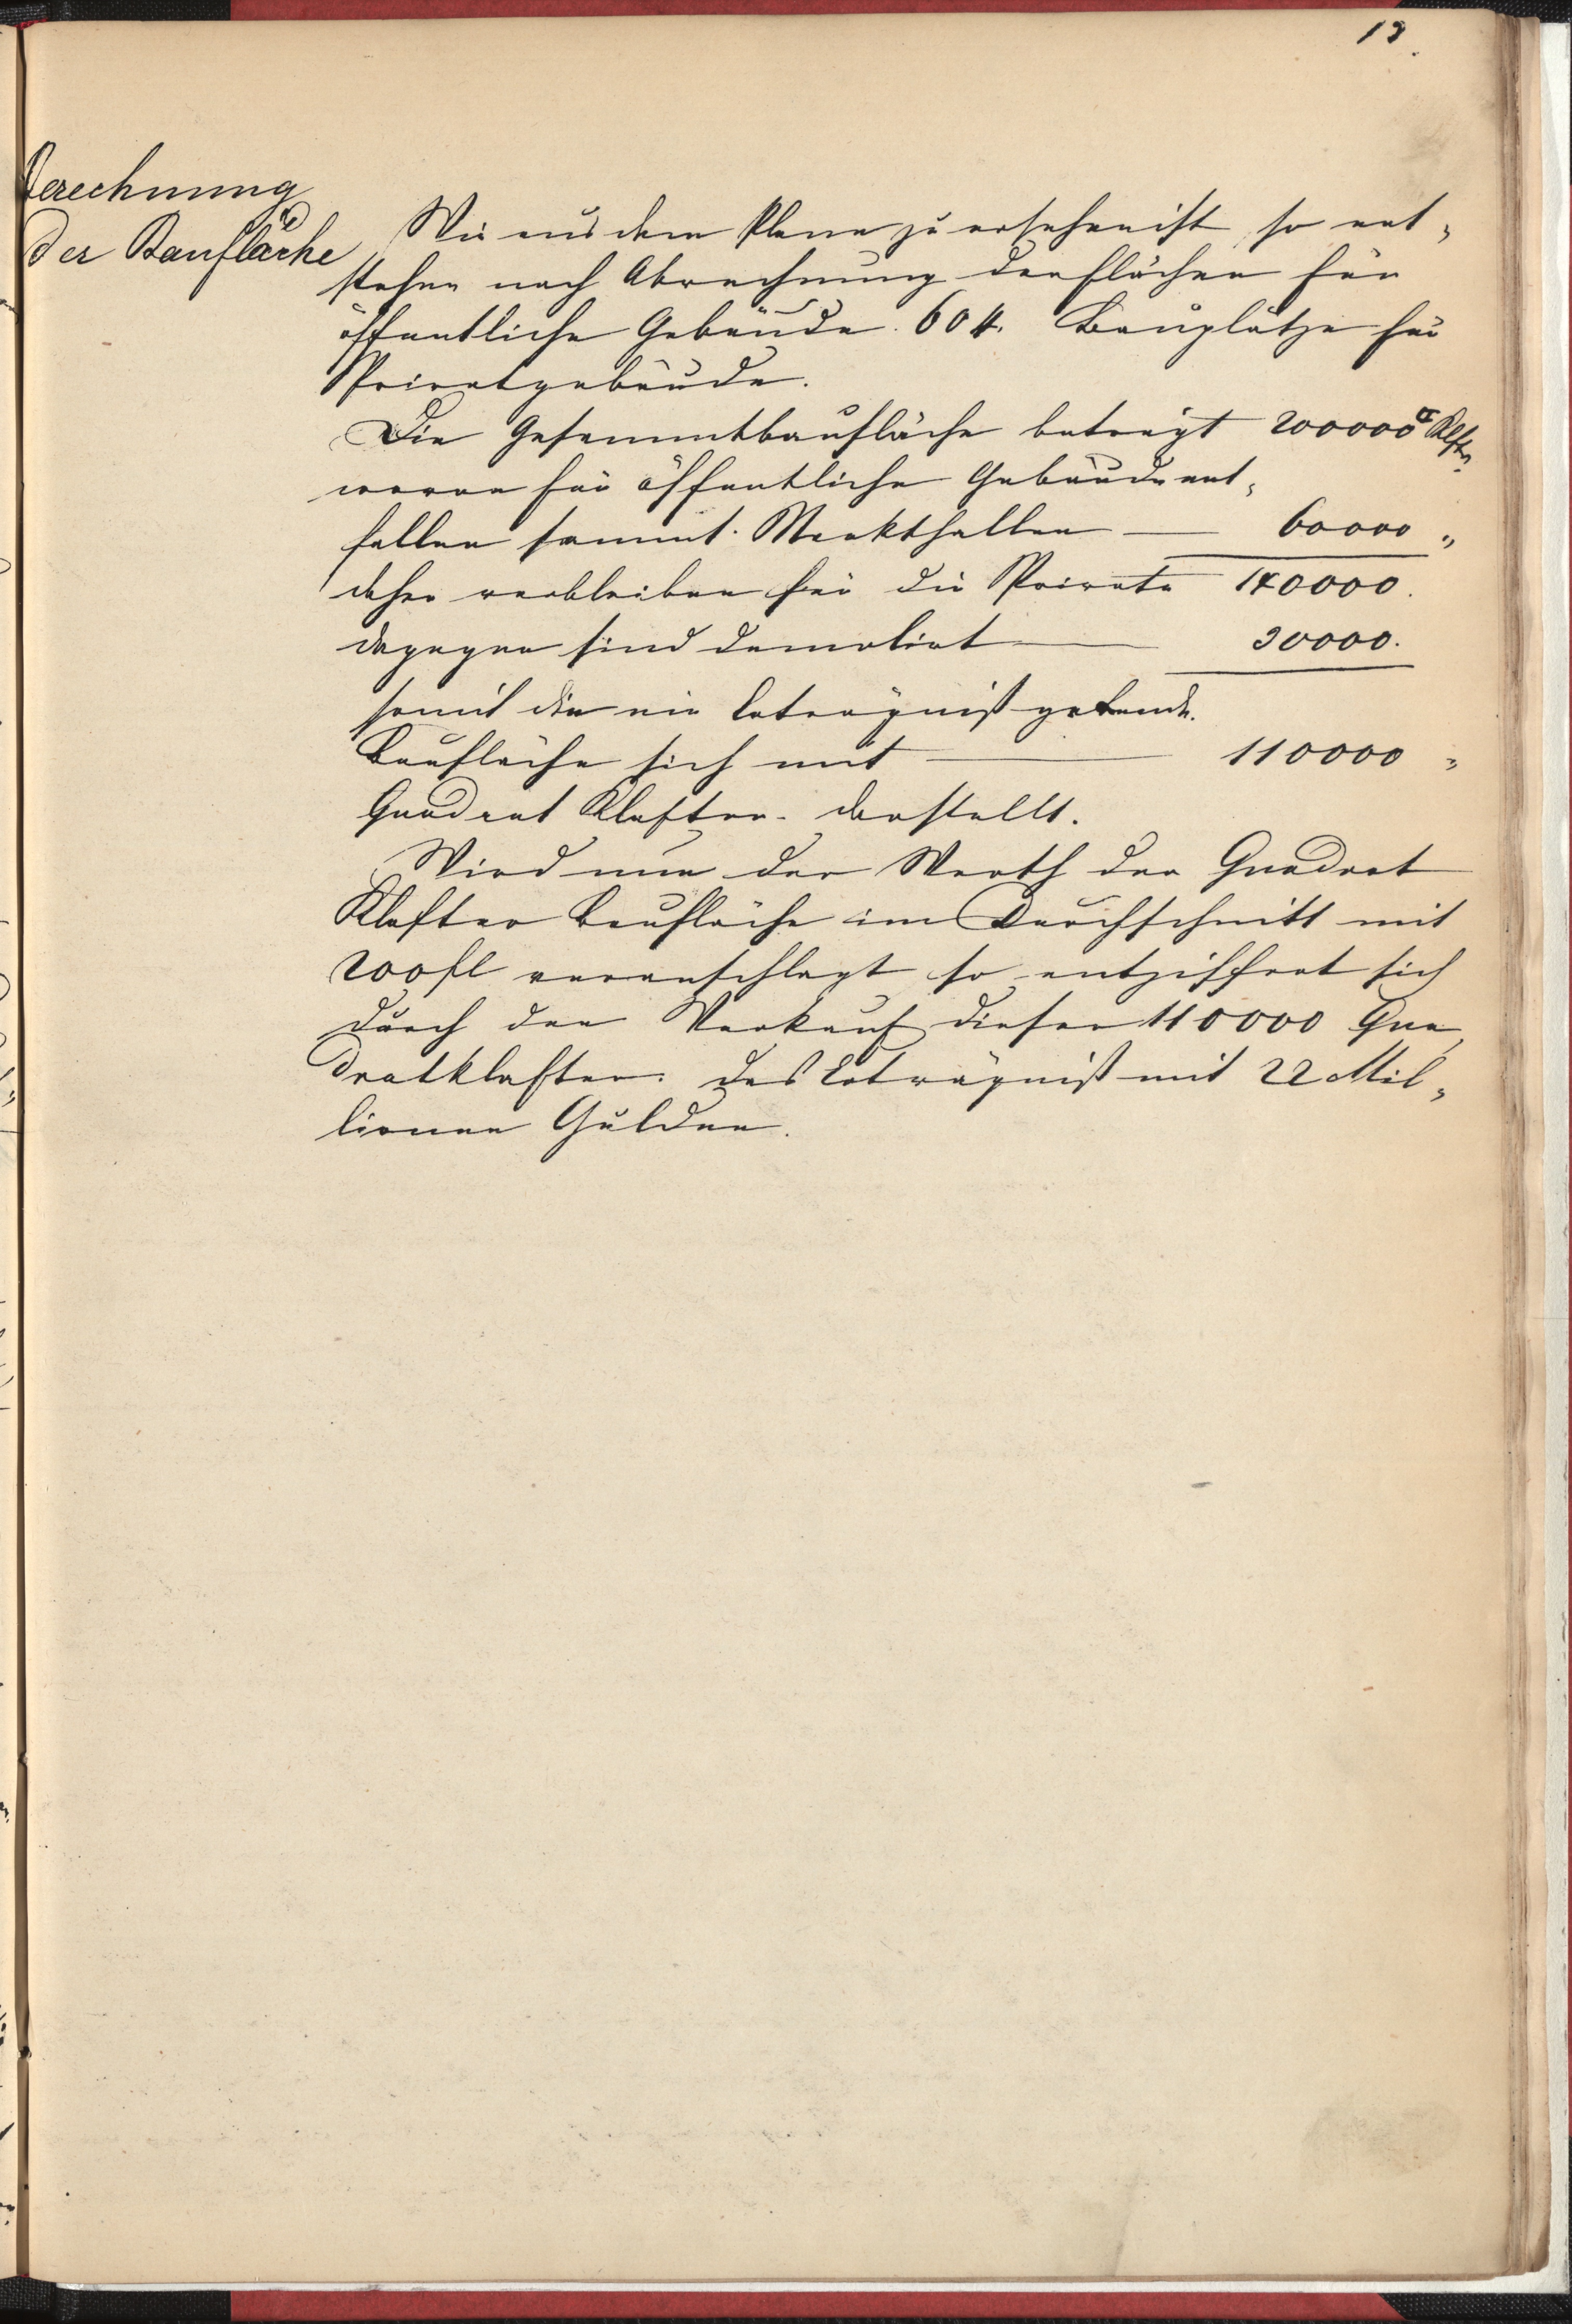 13.
Berechnung
der Baufläche
Wie aus dem Plane zu ersehen ist, so ent„
stehen nach Abrechnung der Flächen für
öffentliche Gebäude. 604. Bauplätze für
Privatgebäude.
Die Gesammtbaufläche beträgt 200000□ Klftr.
wovon für öffentliche Gebäude ent„
fallen sammt. Markthallen — 60000 „
daher verbleiben für die Private 140000.
dagegen sind demolirt — 30000.
somit die ein Erträgniß gebende.
Baufläche sich mit — 110000 „
Quadrat Klafter. darstellt.
Wird nun der Werth der Quadrat
Klafter Baufläche im Durchschnitt mit
200 fl veranschlagt so entziffert sich
durch den Verkauf dieser 110000 Qua„
dratklafter. das Erträgniß mit 22 Mil„
lionen Gulden.